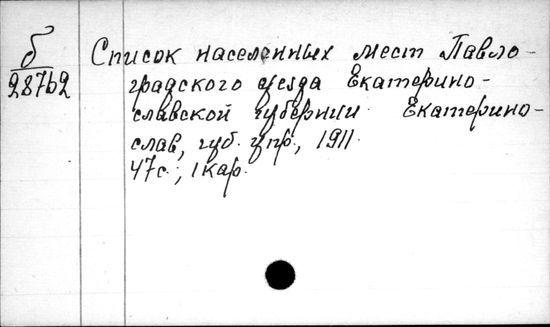 б
28762
Список населенных мест Павло-
градского уезда Екатерино-
славской губернии Екатерино-
слав, губ. упр., 1911.
47с., 1 кар.